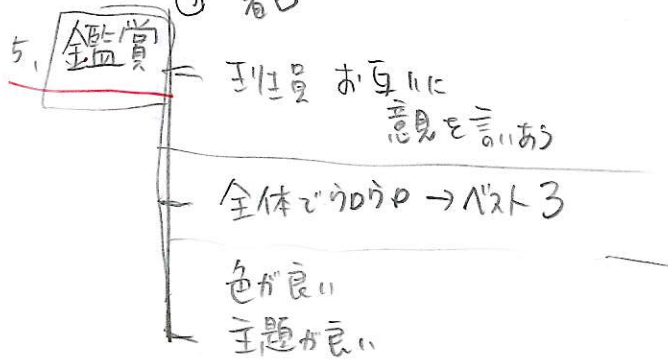 5、鑑賞
班員 お互いに
意見を言いあう
全体でウロウロ→ベスト3
色が良い
主題が良い